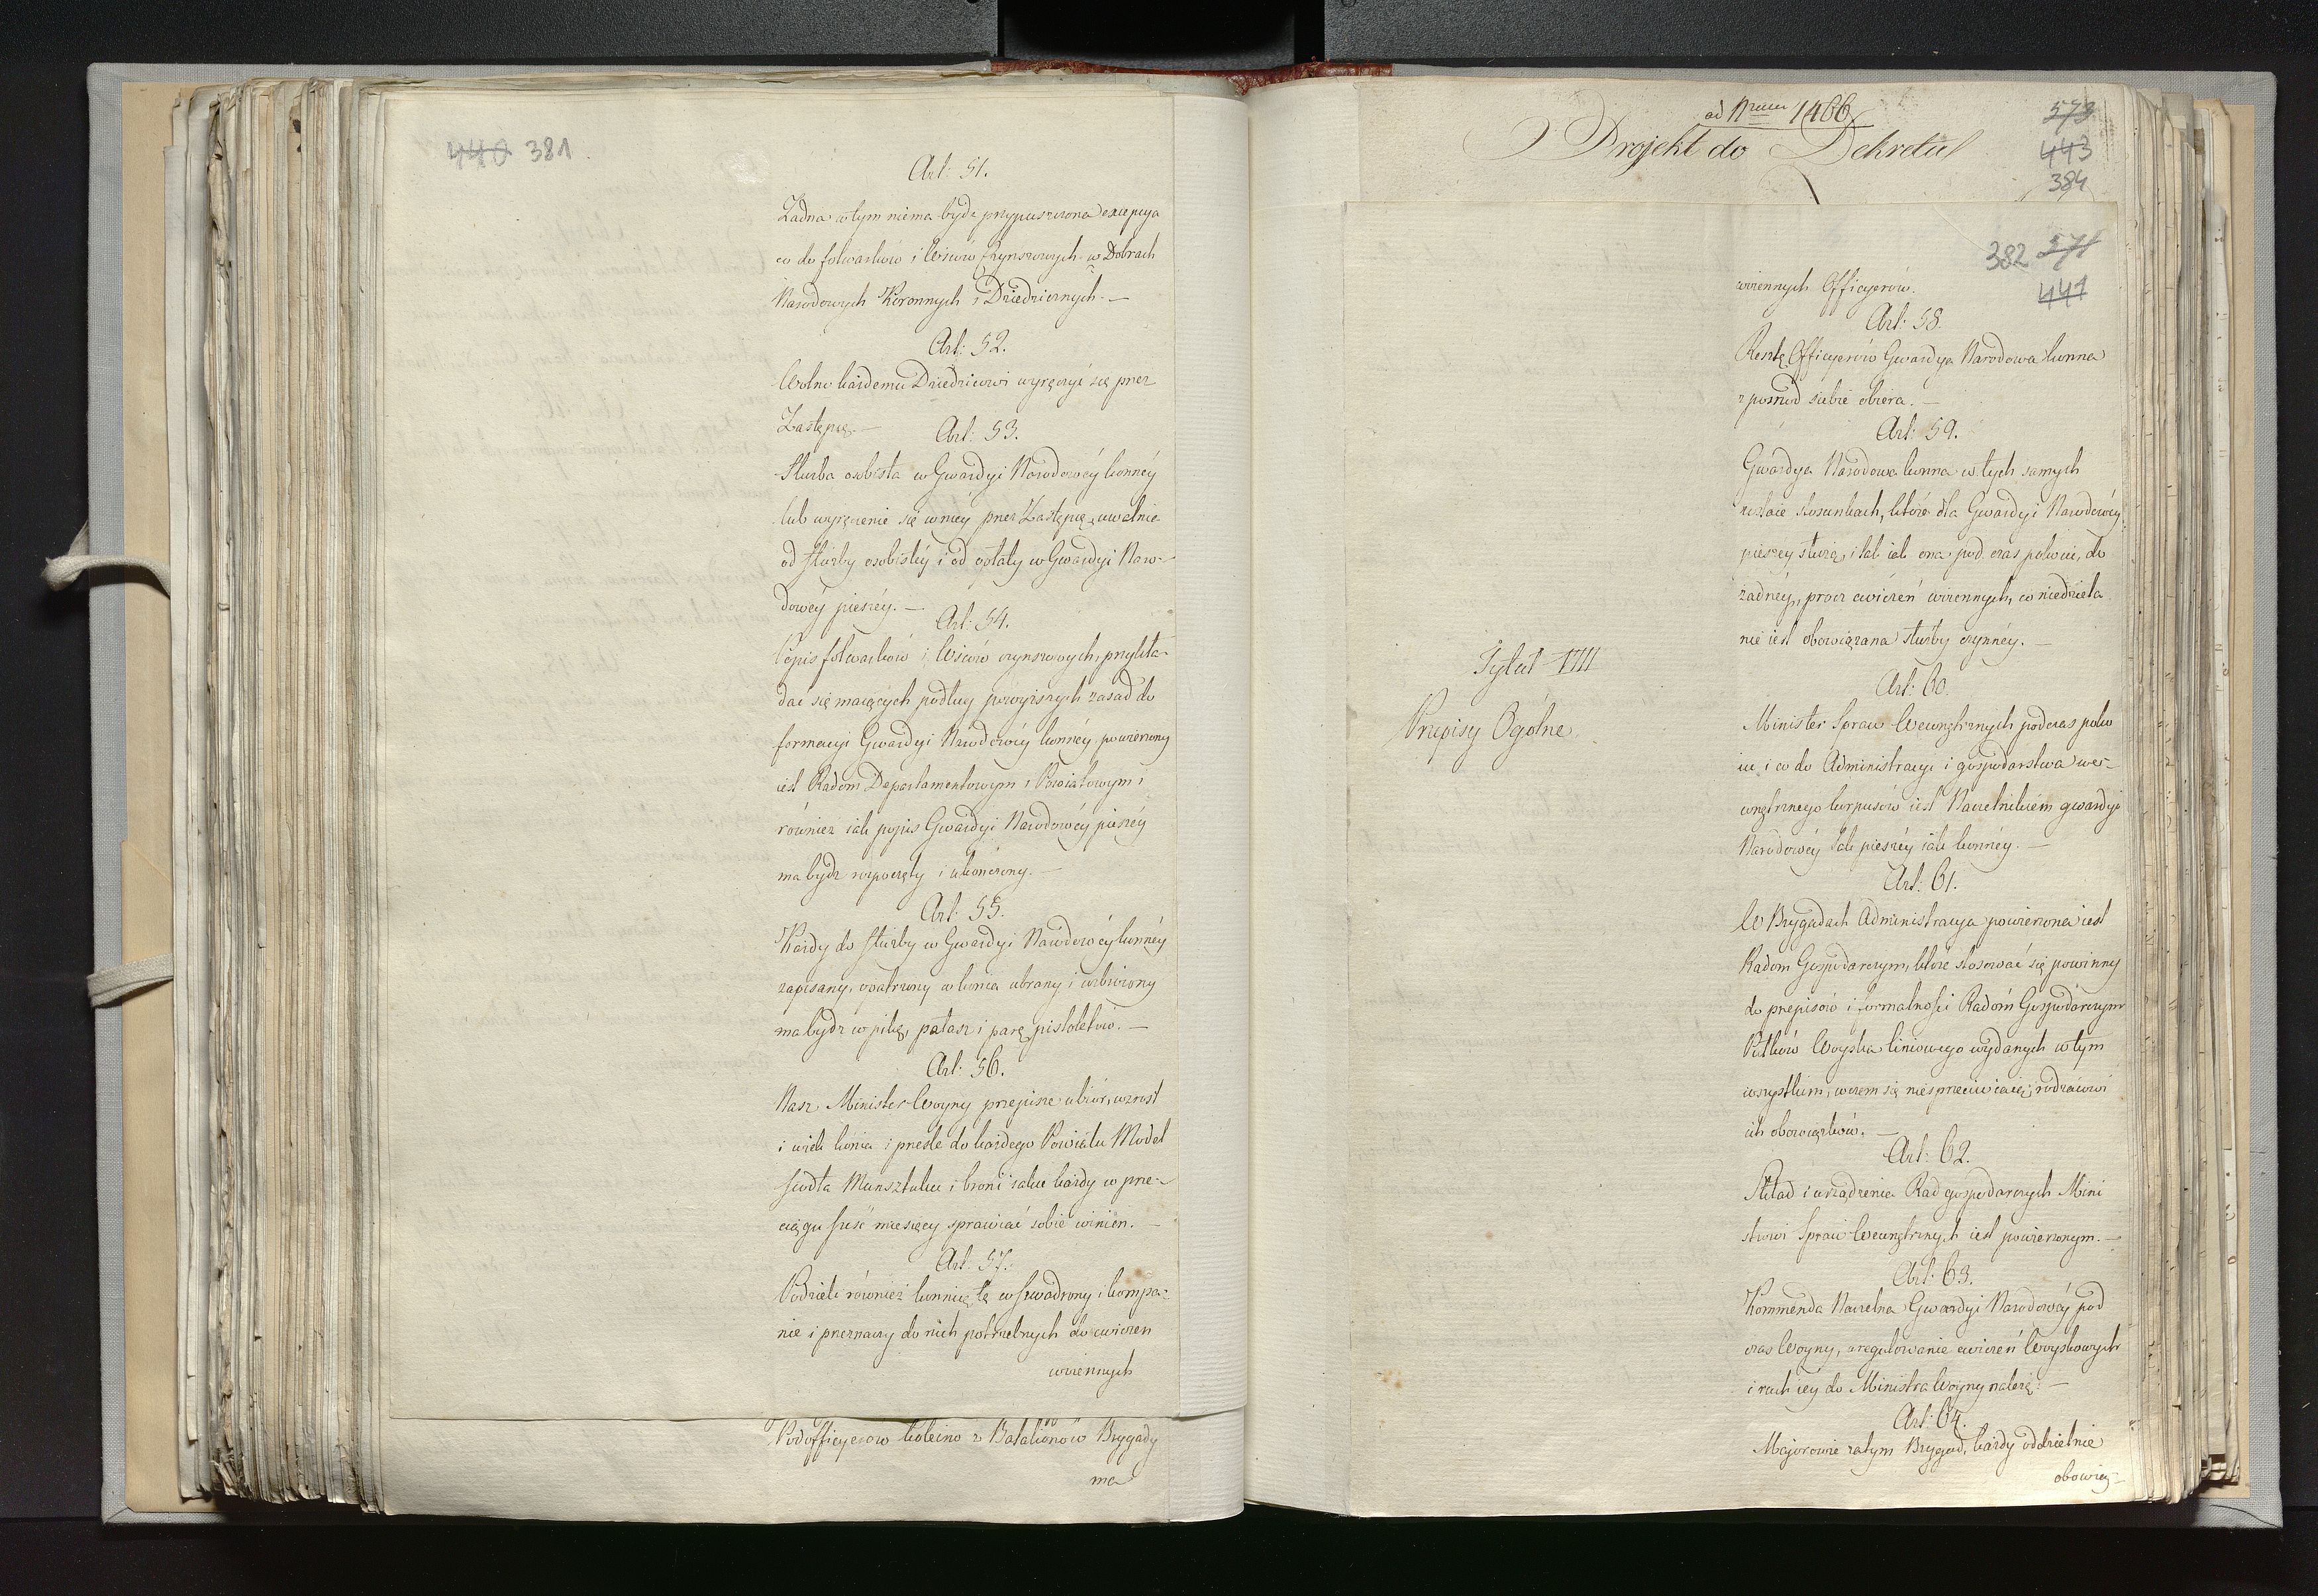 440 381
Art: 51.
Żadna w tym niema bydz przypuszczona excepcya
co do folwarków i Wsiów Czynszowych w Dobrach
Narodowych Koronnych i Dziedzicznych. —
Art: 52.
Wolno każdemu Dziedzicowi wyręczyć się przez
Zastępcę. —
Art: 53.
Służba osobista w Gwardyi Narodowéy konnéy
lub wyręczenie się wniéy przez Zastępcę, uwalnia
od służby osobistéy i od opłaty w Gwardyi Naro-
dowéy pieszéy. —
Art: 54.
Popis folwarków i Wsiów czynszowych, przykła-
dać się maiących podług powyższych zasad do
formacyi Gwardyi Narodowéy konnéy powierzony
iest Radom Departamentowym i Powiatowym i
równiez iak popis Gwardyi Narodowéy pieszéy
ma bydz rozpoczęty i ukończony. —
Art: 55.
Każdy do służby w Gwardyi Narodowéy konnéy
zapisany, opatrzony w konia ubrany i uzbroiony
ma bydz w pikę, pałasz i parę pistoletów. —
Art: 56.
Nasz Minister Woyny przepisze ubiór, wzrost
i wiek konia i prześle do każdego Powiatu Model
siodła Munsztuku i broni iakie każdy w prze-
ciągu sześć miesięcy sprawiać sobie winien. —
Art: 57.
Podzieli również konnicę tę w szwadrony i kompa-
nie i przeznaczy do nich potrzebnych do cwiczeń
woiennych
Podofficyerów koleino z Batalionów Brygady
ma
ad Nrum 1466
Projekt do Dekretu
573
443
384
382 571
441
woiennych Officyerów.
Art: 58.
Resztę Officyerów Gwardya Narodowa konna
z pośród siebie obiera. —
Art: 59.
Gwardya Narodowa konna w tych samych
zostaie stosunkach, które dla Gwardyi Narodowéy
pieszey służą, i tak iak ona pod czas pokoiu, do
żadnéy, prócz cwiczeń woiennych, co niedziela
nie iest obowiązana służby czynnéy. —
Tytuł VIII
Przepisy Ogólne
Art: 60.
Minister Spraw Wewnętrznych podczas poko
iu, i co do Administracyi i gospodarstwa we-
wnętrznego korpusów iest Naczelnikiem gwardyi
Narodowéy tak pieszéy iak konnéy. —
Art: 61.
W Brygadach Administracya powierzona iest
Radom Gospodarczym, które stosować się powinny
do przepisów i formalności Radom Gospodarczym
Pułków Woyska liniowego wydanych w tym
wszystkim, w czem się nie sprzeciwiaią rodzaiowi
ich obowiązków. —
Art: 62.
Skład i urządzenia Rad gospodarczych Mini
strowi Spraw Wewnętrznych iest powierzonym. —
Art: 63.
Kommenda Naczelna Gwardyi Narodowéy pod
czas Woyny, uregulowanie cwiczeń Woyskowych
i ruch iey do Ministra Woyny należą: —
Art: 64.
Majorowie zatym Brygad, każdy oddzielnie
obowią-